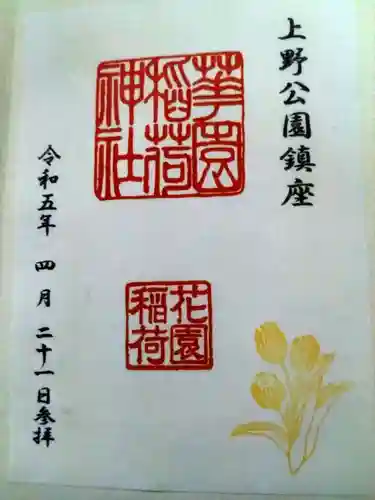 上野公園鎮座
華園
稲荷
神社
花園
稲荷
令和五年 四月 二十一日参拝